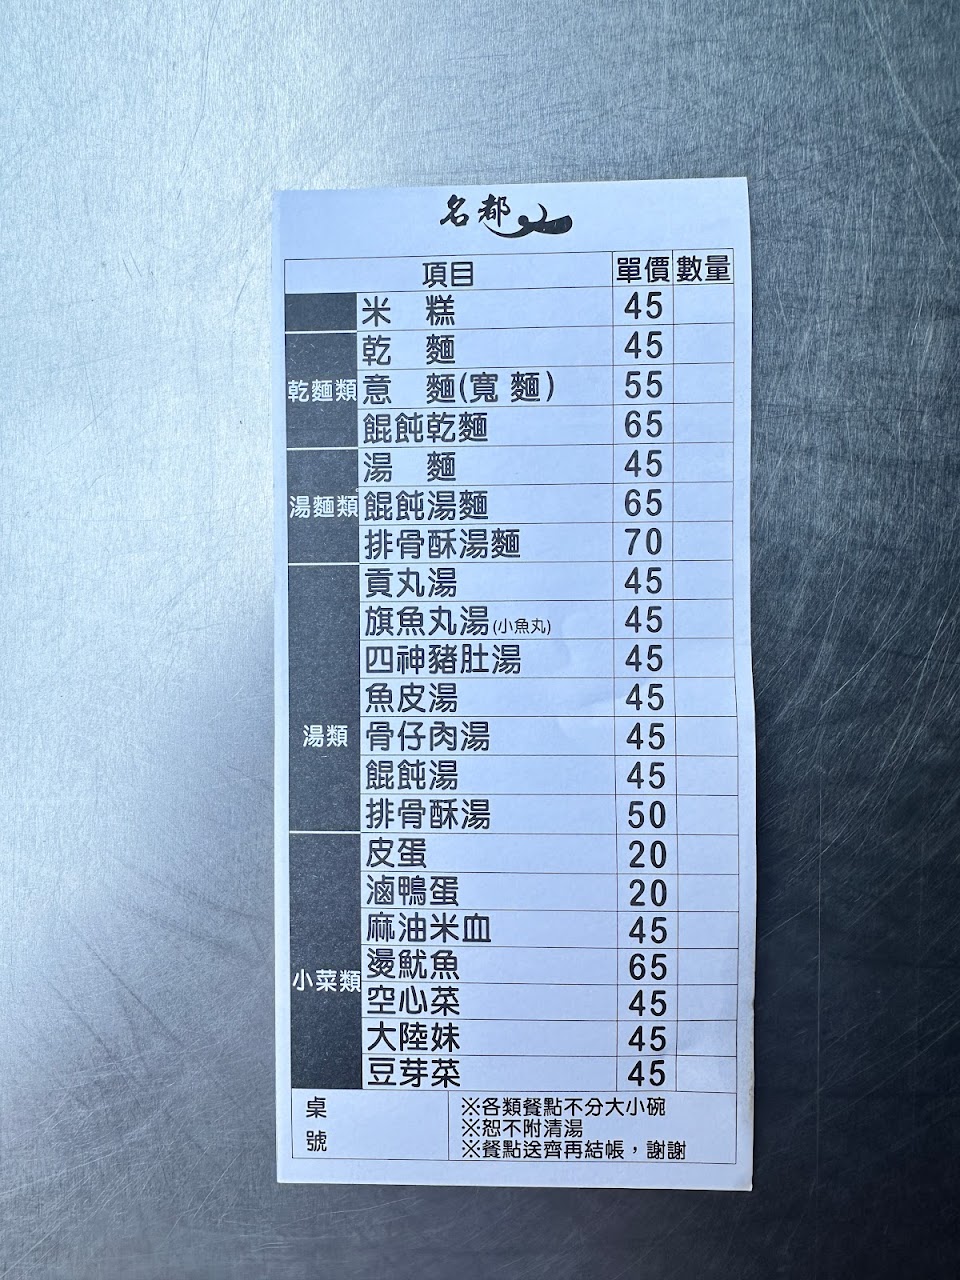 名都
項目 單價 數量
米 糕 45
乾麵類
乾 麵 45
意 麵(寬 麵) 55
餛飩乾麵 65
湯麵類
湯 麵 45
餛飩湯麵 65
排骨酥湯麵 70
湯類
貢丸湯 45
旗魚丸湯(小魚丸) 45
四神豬肚湯 45
魚皮湯 45
骨仔肉湯 45
餛飩湯 45
排骨酥湯 50
小菜類
皮蛋 20
滷鴨蛋 20
麻油米血 45
燙魷魚 65
空心菜 45
大陸妹 45
豆芽菜 45
桌
號
※各類餐點不分大小碗
※恕不附清湯
※餐點送齊再結帳，謝謝